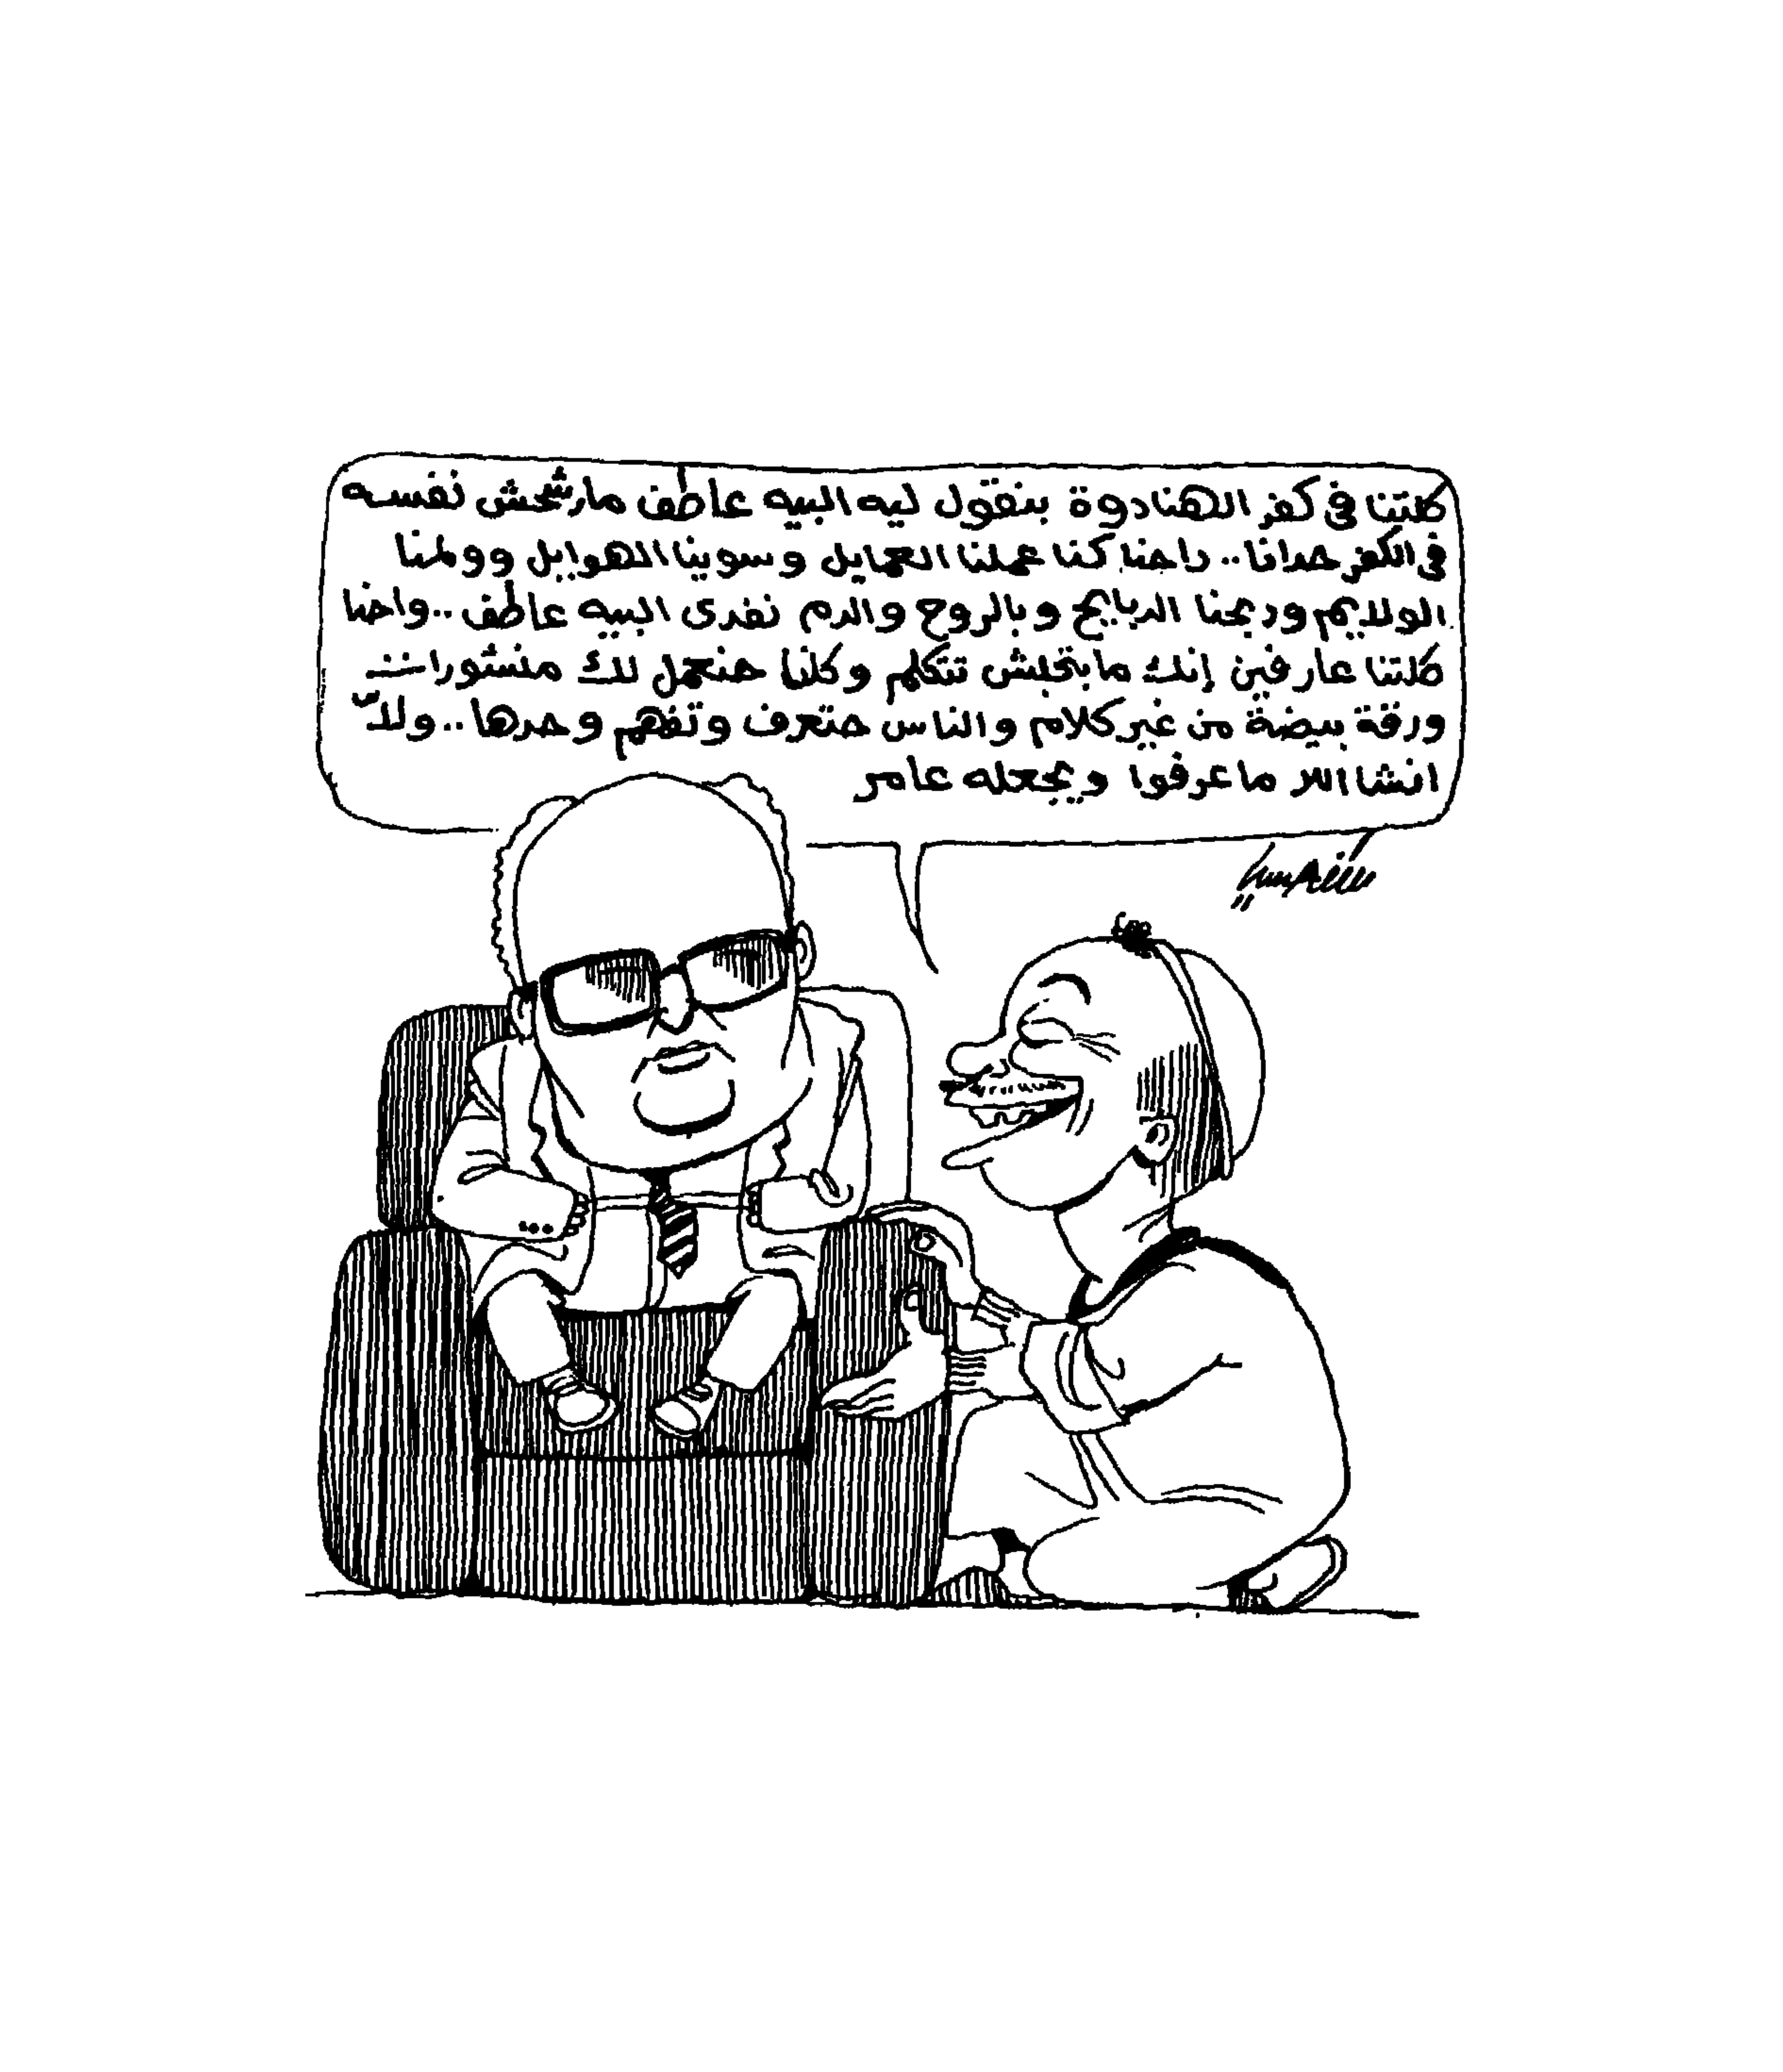 كلتنا فى كفر الهنادوة بنقول ليه البيه عاطف مارشحش نفسه
فى الكفر حدانا.. داحنا كنا عملنا العمايل وسوينا الهوايل وولمنا
الولايم ودبحنا الدبايح وبالروح والدم نفدى البيه عاطف.. واحنا
كلتنا عارفين إنك مابتحبش تتكلم وكلنا حنعمل لك منشورات
ورقة بيضة من غير كلام والناس حتعرف وتفهم وحدها.. ولاّ
انشا الله ماعرفوا ويجعله عامر